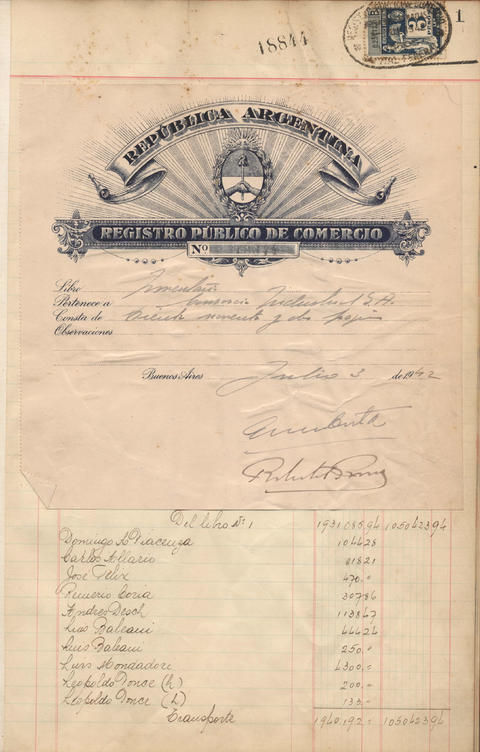 1
18844
REPÚBLICA ARGENTINA
REGISTRO PÚBLICO DE COMERCIO
Nº
Libro Inventario
Pertenece a Industrial S.A.
Consta de Ciento noventa y dos páginas
Observaciones
Buenos Aires Julio 3 de 1942
Del libro Nº 1 1931.085,94 105042394
Domingo A. Piacenza 104428
Carlos Allario 21821
José Félix 470.=
Rumerio Coria 30786
Andres Desch 113847
Luis Baleani 44424
Luis Baleani 250.=
Luis Mondadori 4300.=
Leopoldo Ponce (h) 200.=
Leopoldo Ponce (h) 135.=
Transporte 1940.192= 105042394